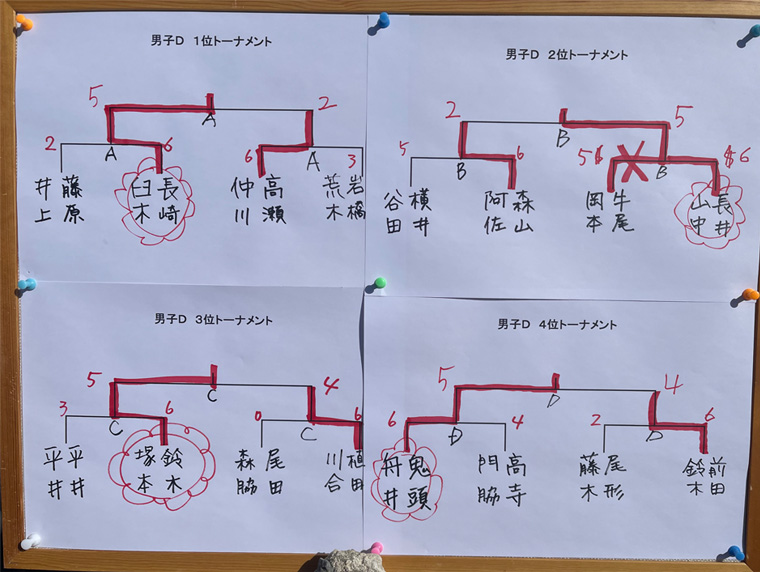 男子D 1位トーナメント
5 2
A
2 6 6 3
A A
藤原 井上
長崎 臼木
高瀬 仲川
岩橋 荒木
男子D 2位トーナメント
2 5
B
5 6 5 6
B B
横井 谷田
森山 阿佐
牛尾 岡本
長井 山中
男子D 3位トーナメント
5 4
C
3 6 0 6
C C
平井 平井
鈴木 塚本
尾田 森脇
植田 川合
男子D 4位トーナメント
5 4
D
6 4 2 6
D D
鬼頭 舟井
高寺 門脇
尾形 藤木
前田 鈴木